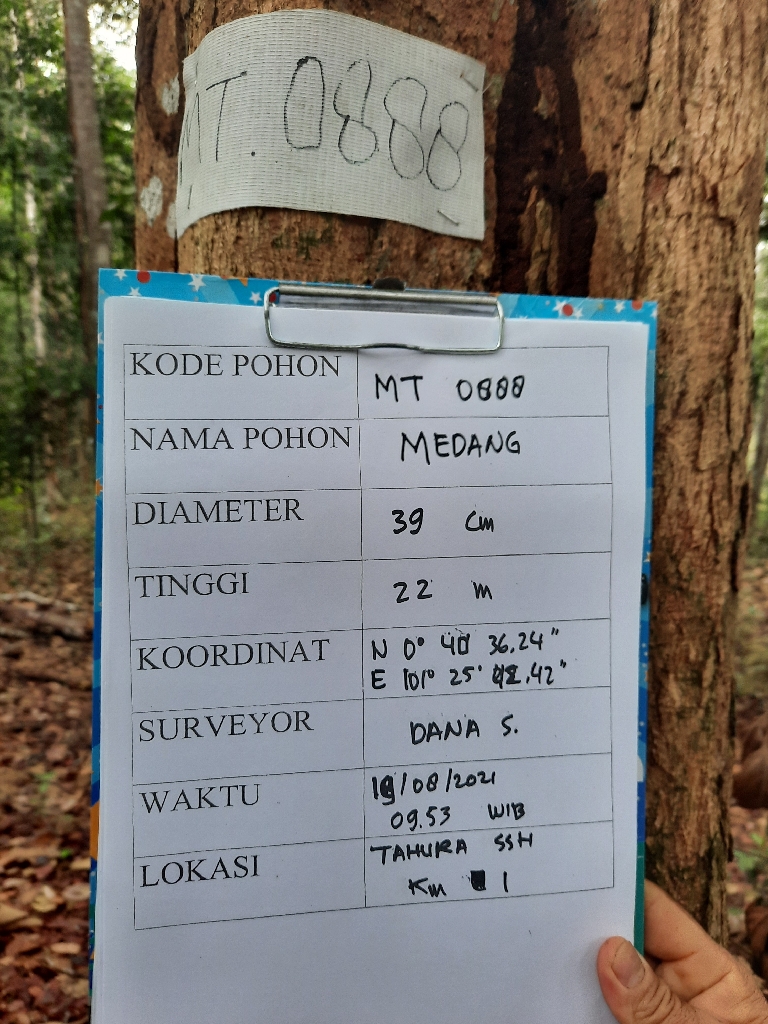 MT. 0888
KODE POHON MT 0888
NAMA POHON MEDANG
DIAMETER 39 Cm
TINGGI 22 m
KOORDINAT N 0° 40' 36.24"
E 101° 25' .42"
SURVEYOR DANA S.
WAKTU /08/2021
09.53 WIB
LOKASI TAHURA SSH
Km 1